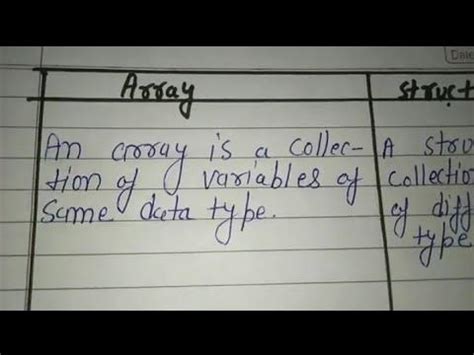 Date
Array
An array is a collec-
tion of variables of
same data type.
struct
A stru
collection
of diff
type